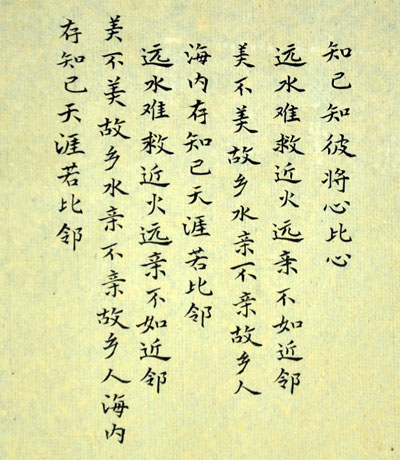 知己知彼将心比心
远水难救近火远亲不如近邻
美不美故乡水亲不亲故乡人
海内存知己天涯若比邻
远水难救近火远亲不如近邻
美不美故乡水亲不亲故乡人海内
存知己天涯若比邻